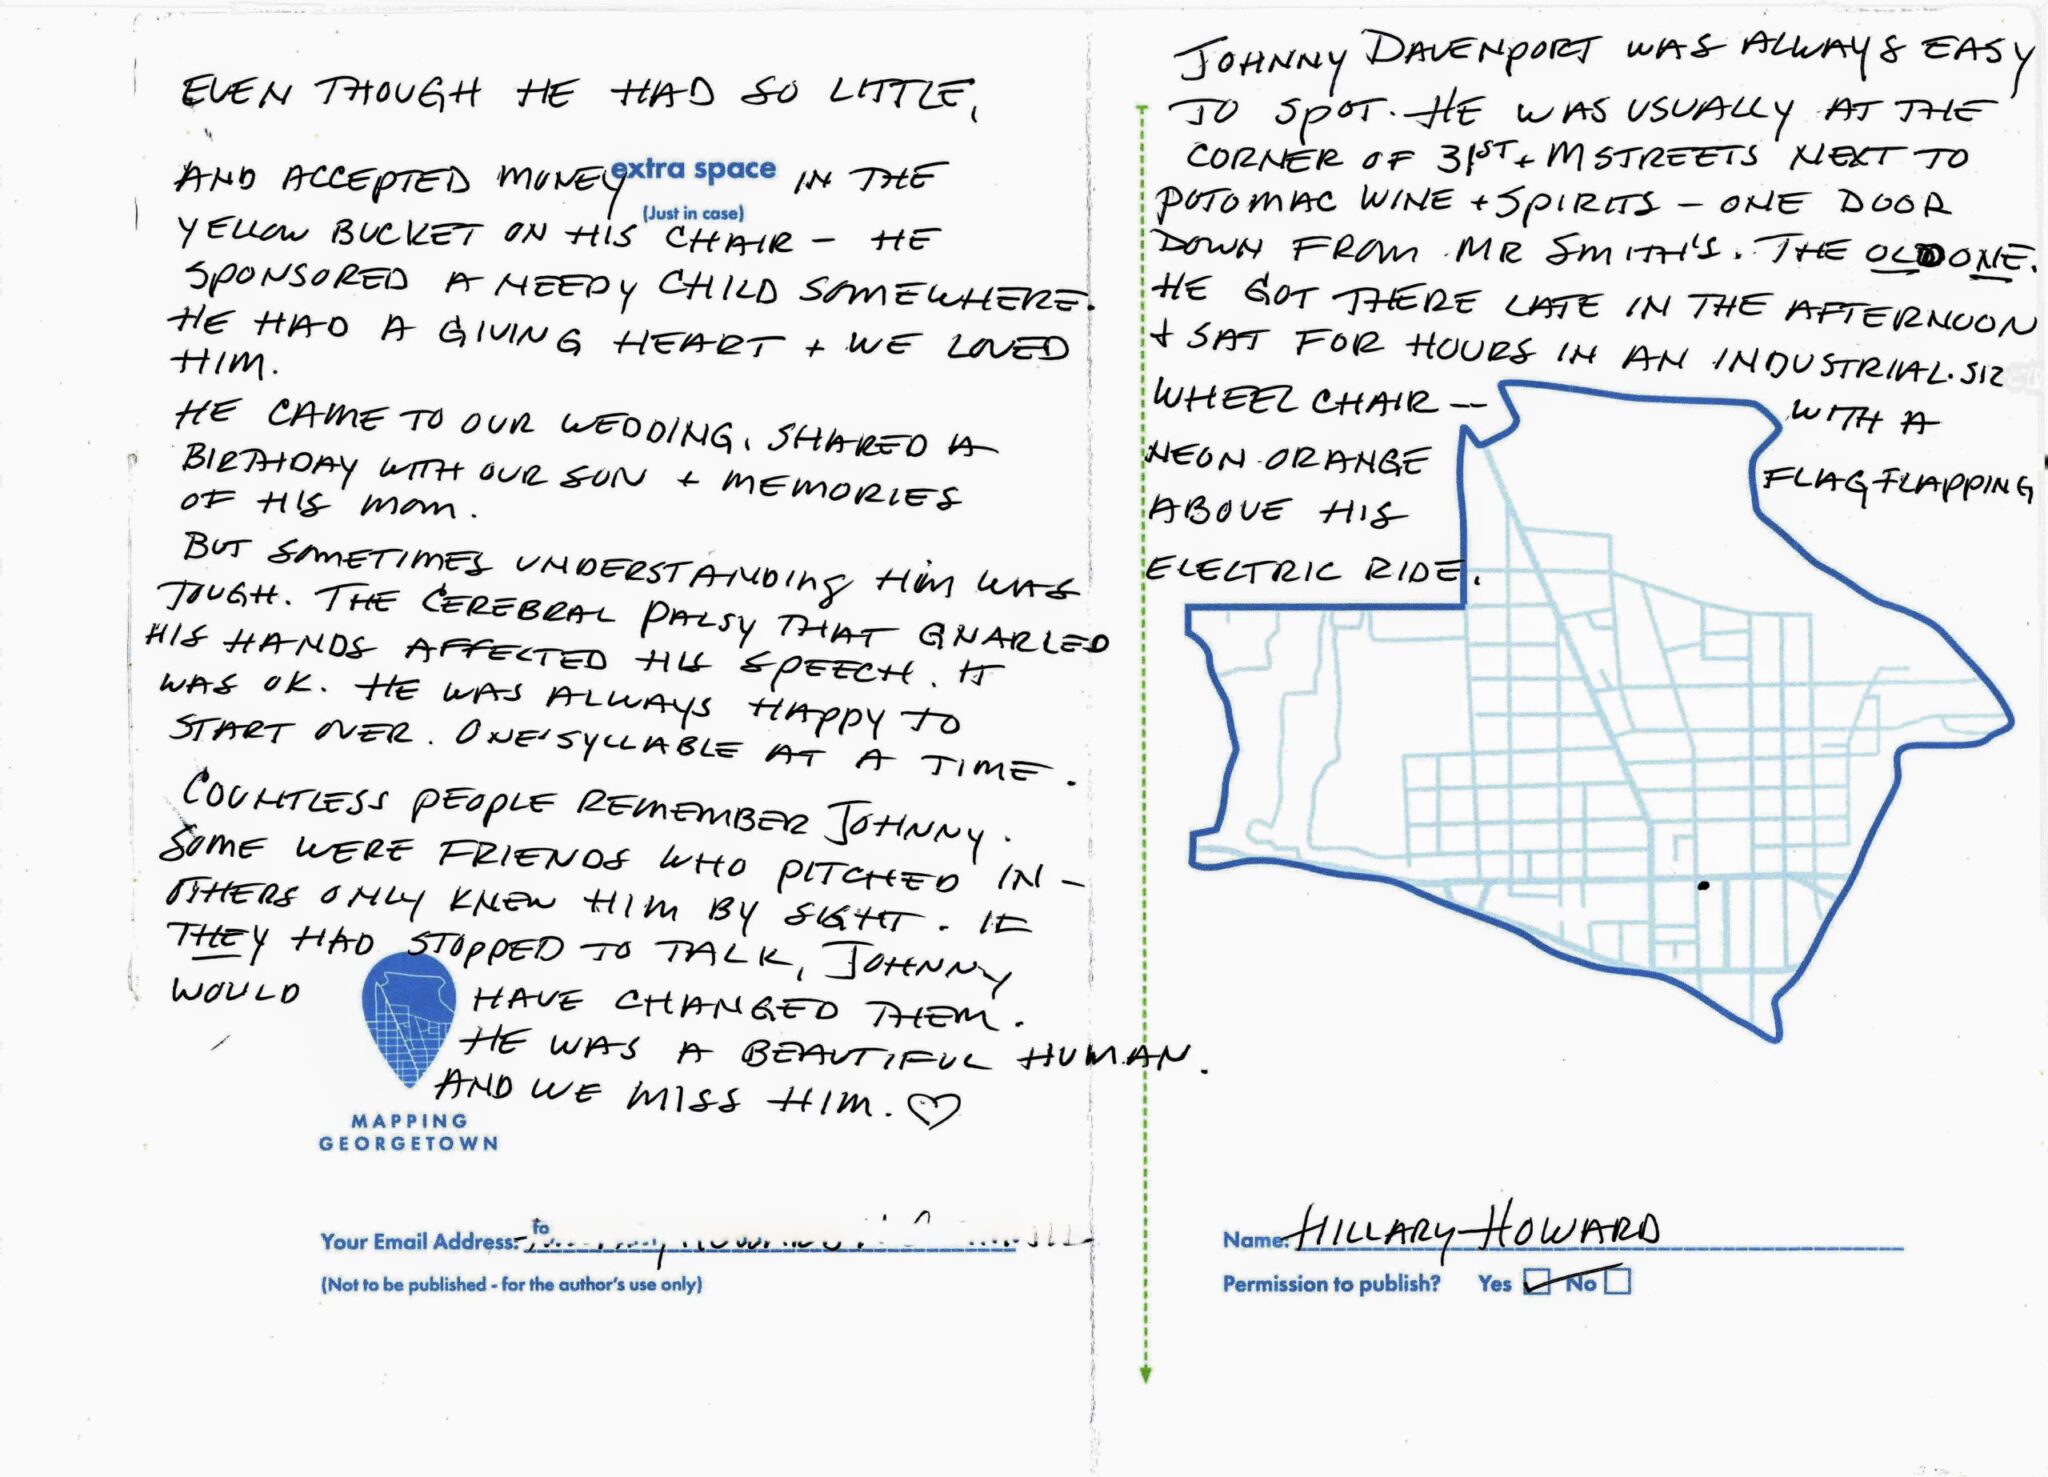 JOHNNY DAVENPORT WAS ALWAYS EASY
TO SPOT. HE WAS USUALLY AT THE
CORNER OF 31ST + M STREETS NEXT TO
POTOMAC WINE + SPIRITS — ONE DOOR
DOWN FROM MR SMITH'S. THE OLD ONE.
HE GOT THERE LATE IN THE AFTERNOON
+ SAT FOR HOURS IN AN INDUSTRIAL-SIZED
WHEEL CHAIR -- WITH A
NEON ORANGE FLAG FLAPPING
ABOVE HIS
ELECTRIC RIDE.
Name: HILLARY HOWARD
Permission to publish? Yes No
EVEN THOUGH HE HAD SO LITTLE,
extra space
AND ACCEPTED MONEY IN THE
(Just in case)
YELLOW BUCKET ON HIS CHAIR — HE
SPONSORED A NEEDY CHILD SOMEWHERE.
HE HAD A GIVING HEART + WE LOVED
HIM.
HE CAME TO OUR WEDDING, SHARED A
BIRTHDAY WITH OUR SON + MEMORIES
OF HIS MOM.
BUT SOMETIMES UNDERSTANDING HIM WAS
TOUGH. THE CEREBRAL PALSY THAT GNARLED
HIS HANDS AFFECTED HIS SPEECH. IT
WAS OK. HE WAS ALWAYS HAPPY TO
START OVER. ONE SYLLABLE AT A TIME.
COUNTLESS PEOPLE REMEMBER JOHNNY.
SOME WERE FRIENDS WHO PITCHED IN —
OTHERS ONLY KNEW HIM BY SIGHT. IF
THEY HAD STOPPED TO TALK, JOHNNY
WOULD HAVE CHANGED THEM.
HE WAS A BEAUTIFUL HUMAN.
AND WE MISS HIM. ♡
MAPPING
GEORGETOWN
Your Email Address:
(Not to be published - for the author's use only)